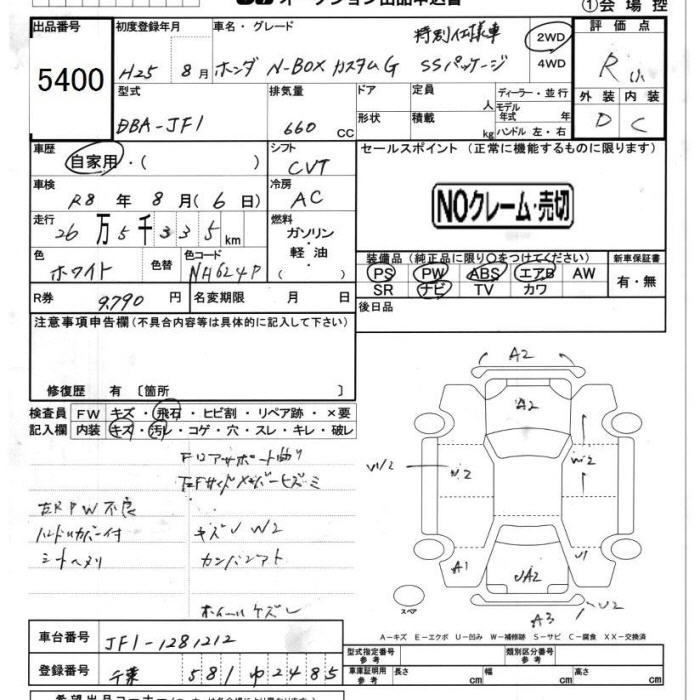 ①会場控
出品番号 初度登録年月 車名・グレード 特別仕様車 2WD 評価点
5400 H25 8月 ホンダ N-BOX カスタムG SSパッケージ 4WD R
型式 排気量 ドア 定員 人 ディーラー・並行 外装 内装
DBA-JF1 660 CC 形状 積載 kg モデル年式 年式 ハンドル 左・右 D C
車歴 シフト セールスポイント(正常に機能するものに限ります)
自家用・( ) CVT
車検 冷房
R8 年 8 月(6 日) AC NOクレーム・売切
走行 燃料
26 万 5 千 3 3 5 km ガソリン・軽油
色 色替 色コード ( ) 装備品(純正品に限り○をつけてください) 新車保証書
ホワイト NH624P PS PW ABS エアB AW 有・無
SR ナビ TV カワ
R券 9790 円 名変期限 月 日 後日品
注意事項申告欄(不具合内容等は具体的に記入して下さい)
修復歴 有 〔箇所 〕
検査員 FW キズ・飛石・ヒビ割・リペア跡・×要
記入欄 内装 キズ・汚レ・コゲ・穴・スレ・キレ・破レ
A2
A2
W2 W2
FロアサポートЭ曲り
左Fサイドメンバーヒズミ
左RPW不良
ハンドルカバー付 キズU W2
シートヘタリ カンバンアト
A1 U1
UA2
スペア A3 U2
ホイールケズレ
A−キズ E−エクボ U−凹み W−補修跡 S−サビ C−腐食 XX−交換済
車台番号 JF1-1281212
型式指定番号 参考 類別区分番号 参考
登録番号 千葉 581 ゆ 2485 車庫証明用 参考 長さ cm 幅 cm 高さ cm